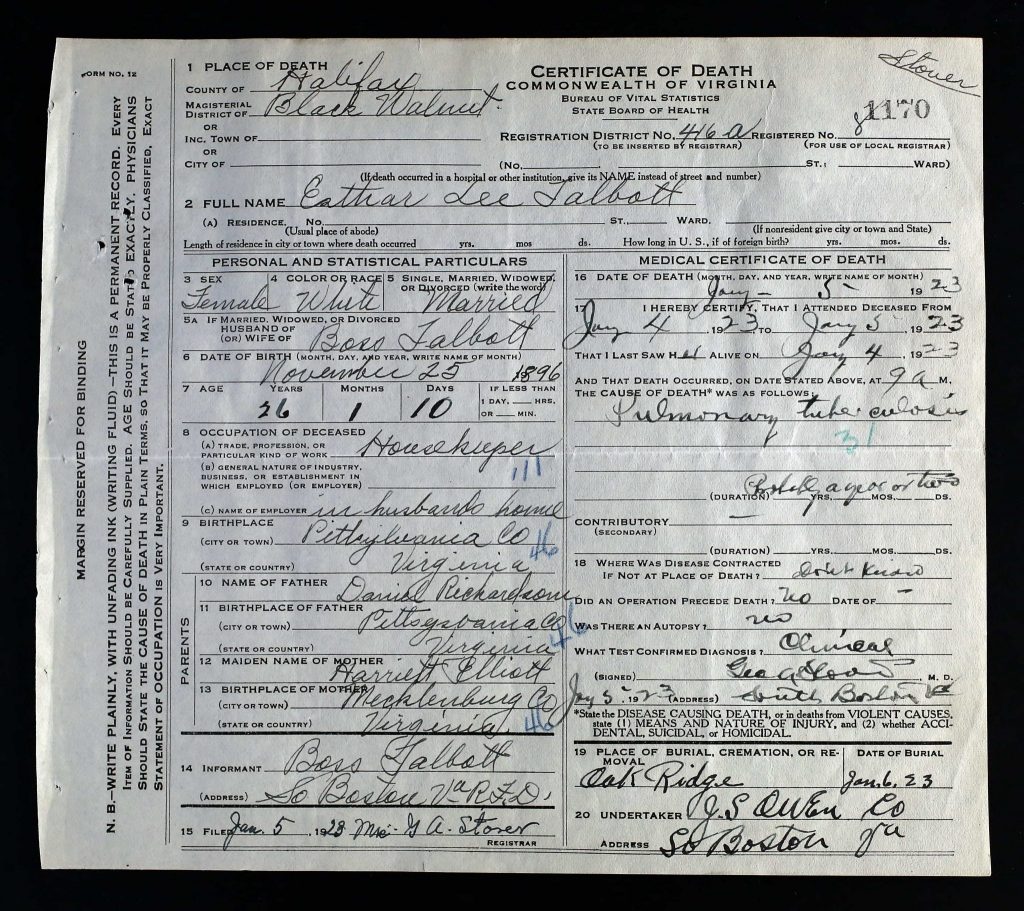 FORM NO. 12
MARGIN RESERVED FOR BINDING
N. B.—WRITE PLAINLY, WITH UNFADING INK (WRITING FLUID)—THIS IS A PERMANENT RECORD. EVERY
ITEM OF INFORMATION SHOULD BE CAREFULLY SUPPLIED. AGE SHOULD BE STATED EXACTLY. PHYSICIANS
SHOULD STATE THE CAUSE OF DEATH IN PLAIN TERMS, SO THAT IT MAY BE PROPERLY CLASSIFIED. EXACT
STATEMENT OF OCCUPATION IS VERY IMPORTANT.
1 PLACE OF DEATH
COUNTY OF Halifax
MAGISTERIAL DISTRICT OF Black Walnut
OR
INC. TOWN OF
OR
CITY OF
CERTIFICATE OF DEATH
COMMONWEALTH OF VIRGINIA
BUREAU OF VITAL STATISTICS
STATE BOARD OF HEALTH
Stover
1170
REGISTRATION DISTRICT NO. 416 a REGISTERED NO. 8
(TO BE INSERTED BY REGISTRAR) (FOR USE OF LOCAL REGISTRAR)
(No. ST.: WARD)
(If death occurred in a hospital or other institution, give its NAME instead of street and number)
2 FULL NAME Eathar Lee Talbott
(A) RESIDENCE. No. ST., WARD.
(Usual place of abode) (If nonresident give city or town and State)
Length of residence in city or town where death occurred yrs. mos ds. How long in U. S., if of foreign birth? yrs. mos. ds.
PERSONAL AND STATISTICAL PARTICULARS
3 SEX Female
4 COLOR OR RACE White
5 SINGLE, MARRIED, WIDOWED, OR DIVORCED (write the word) Married
5A IF MARRIED, WIDOWED, OR DIVORCED
HUSBAND OF
(OR) WIFE OF Boss Talbott
6 DATE OF BIRTH (MONTH, DAY, AND YEAR, WRITE NAME OF MONTH)
November 25 1896
7 AGE YEARS MONTHS DAYS IF LESS THAN
26 1 10 1 DAY, HRS.
OR MIN.
8 OCCUPATION OF DECEASED
(A) TRADE, PROFESSION, OR PARTICULAR KIND OF WORK Housekeeper
(B) GENERAL NATURE OF INDUSTRY, BUSINESS, OR ESTABLISHMENT IN WHICH EMPLOYED (OR EMPLOYER) 111
(C) NAME OF EMPLOYER in husbands home
9 BIRTHPLACE
(CITY OR TOWN) Pittsylvania Co
(STATE OR COUNTRY) Virginia 46
PARENTS
10 NAME OF FATHER Daniel Richardson
11 BIRTHPLACE OF FATHER
(CITY OR TOWN) Pittsylvania Co
(STATE OR COUNTRY) Virginia 46
12 MAIDEN NAME OF MOTHER Harriett Elliott
13 BIRTHPLACE OF MOTHER
(CITY OR TOWN) Mecklenburg Co
(STATE OR COUNTRY) Virginia 46
14 INFORMANT Boss Talbott
(ADDRESS) So Boston Va R.F.D.
15 FILED Jan. 5, 1923 G A. Stover
REGISTRAR
MEDICAL CERTIFICATE OF DEATH
16 DATE OF DEATH (MONTH, DAY, AND YEAR, WRITE NAME OF MONTH)
Jany - 5 - 1923
17 I HEREBY CERTIFY, THAT I ATTENDED DECEASED FROM
Jany 4 1923 TO Jany 5, 1923
THAT I LAST SAW HER ALIVE ON Jany 4, 1923
AND THAT DEATH OCCURRED, ON DATE STATED ABOVE, AT 9 A M.
THE CAUSE OF DEATH* WAS AS FOLLOWS:
Pulmonary tuberculosis
31
Probably a year or two
(DURATION) YRS. MOS. DS.
CONTRIBUTORY —
(SECONDARY)
(DURATION) YRS. MOS. DS.
18 WHERE WAS DISEASE CONTRACTED
IF NOT AT PLACE OF DEATH? Don't know
DID AN OPERATION PRECEDE DEATH? No DATE OF —
WAS THERE AN AUTOPSY? no
WHAT TEST CONFIRMED DIAGNOSIS? Clinical
(SIGNED) Geo A M. D.
Jany 5 1923 (ADDRESS) South Boston Va
*State the DISEASE CAUSING DEATH, or in deaths from VIOLENT CAUSES,
state (1) MEANS AND NATURE OF INJURY, and (2) whether ACCI-
DENTAL, SUICIDAL, or HOMICIDAL.
19 PLACE OF BURIAL, CREMATION, OR RE-MOVAL DATE OF BURIAL
Oak Ridge Jan. 6. 23
20 UNDERTAKER J. S OWEN Co
ADDRESS So Boston Va